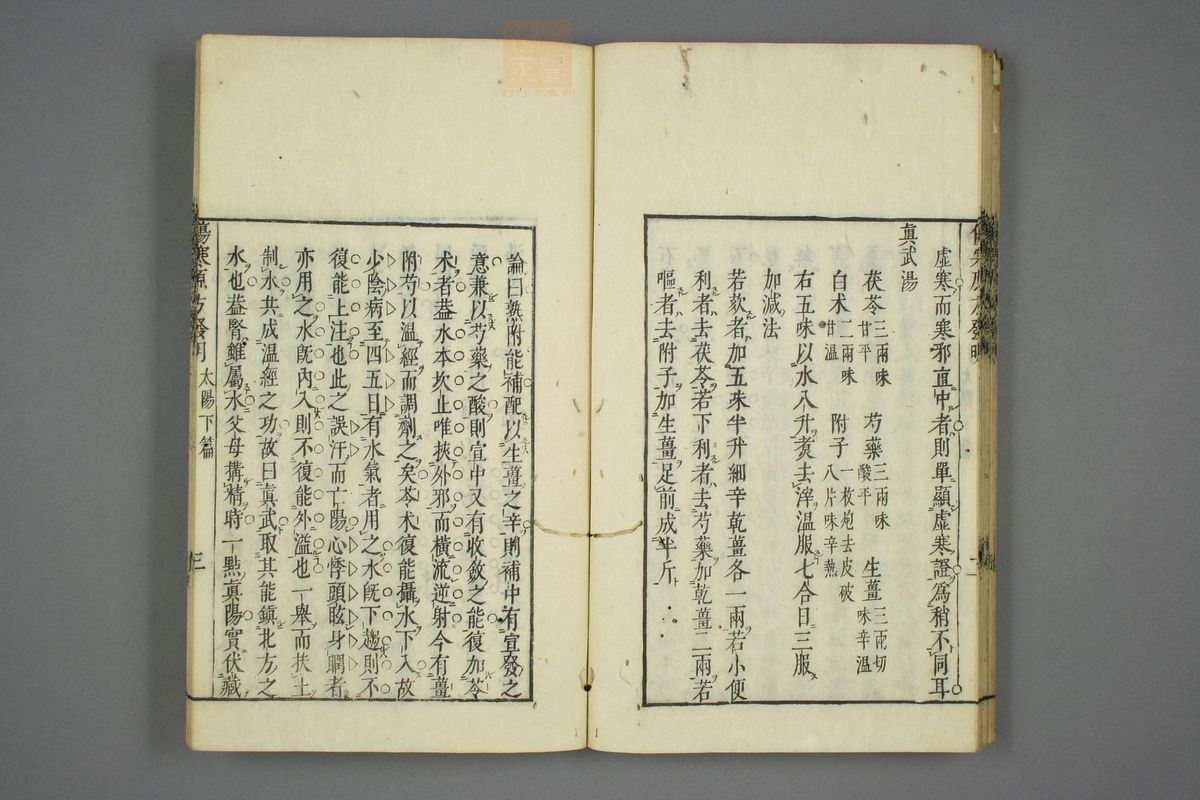 虛寒而寒邪直中者則單顯虛寒證爲稍不同耳
眞武湯
茯苓三兩味甘平 芍藥三兩味酸平 生薑三兩切味辛溫
白朮二兩味甘溫 附子一枚炮去皮破八片味辛熱
右五味以水八升煑去滓溫服七合日三服
加減法
若欬者加五味半升細辛乾薑各一兩若小便
利者去茯苓若下利者去芍藥加乾薑二兩若
嘔者去附子加生薑足前成半斤
論曰熟附能補配以生薑之辛則補中有宣發之
意兼以芍藥之酸則宣中又有收斂之能復加苓
朮者蓋水本坎止唯挾外邪而橫流逆射今有薑
附芍以溫經而調劑之矣苓朮復能攝水下入故
少陰病至四五日有水氣者用之水旣下趨則不
復能上注也此之誤汗而亡陽心悸頭眩身瞤者
亦用之水旣內入則不復能外溢也一舉而扶土
制水共成溫經之功故曰眞武取其能鎮北方之
水也蓋腎雖屬水父母搆精時一點眞陽實伏藏
傷寒原方發明 太陽下篇 三
zysj.com.cn